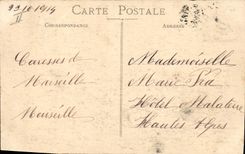 CARTE POSTALE
CORRESPONDANCE
ADRESSE
Caresses de
Marseille
Marseille
Mademoiselle
Marie
Hôtel
Hautes Alpes